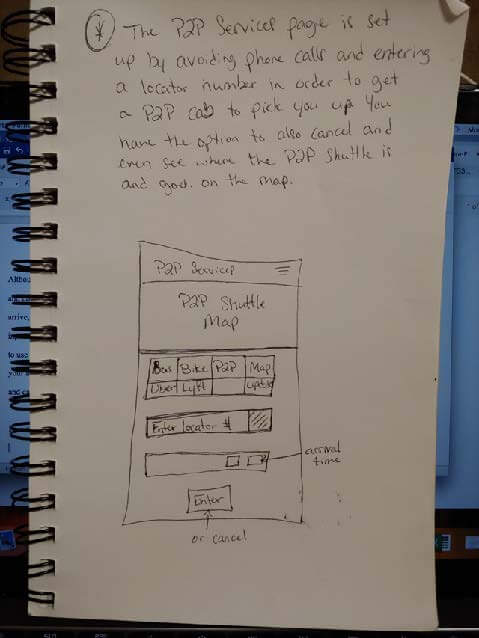 ¥ The P2P Services page is set
up by avoiding phone calls and entering
a locator number in order to get
a P2P cab to pick you up. You
have the option to also cancel and
even see where the P2P Shuttle is
and on the map.
P2P Services
P2P Shuttle
Map
Bus Bike P2P Map
Uber Lyft Update
Enter locator #
arrival
time
Enter
or cancel